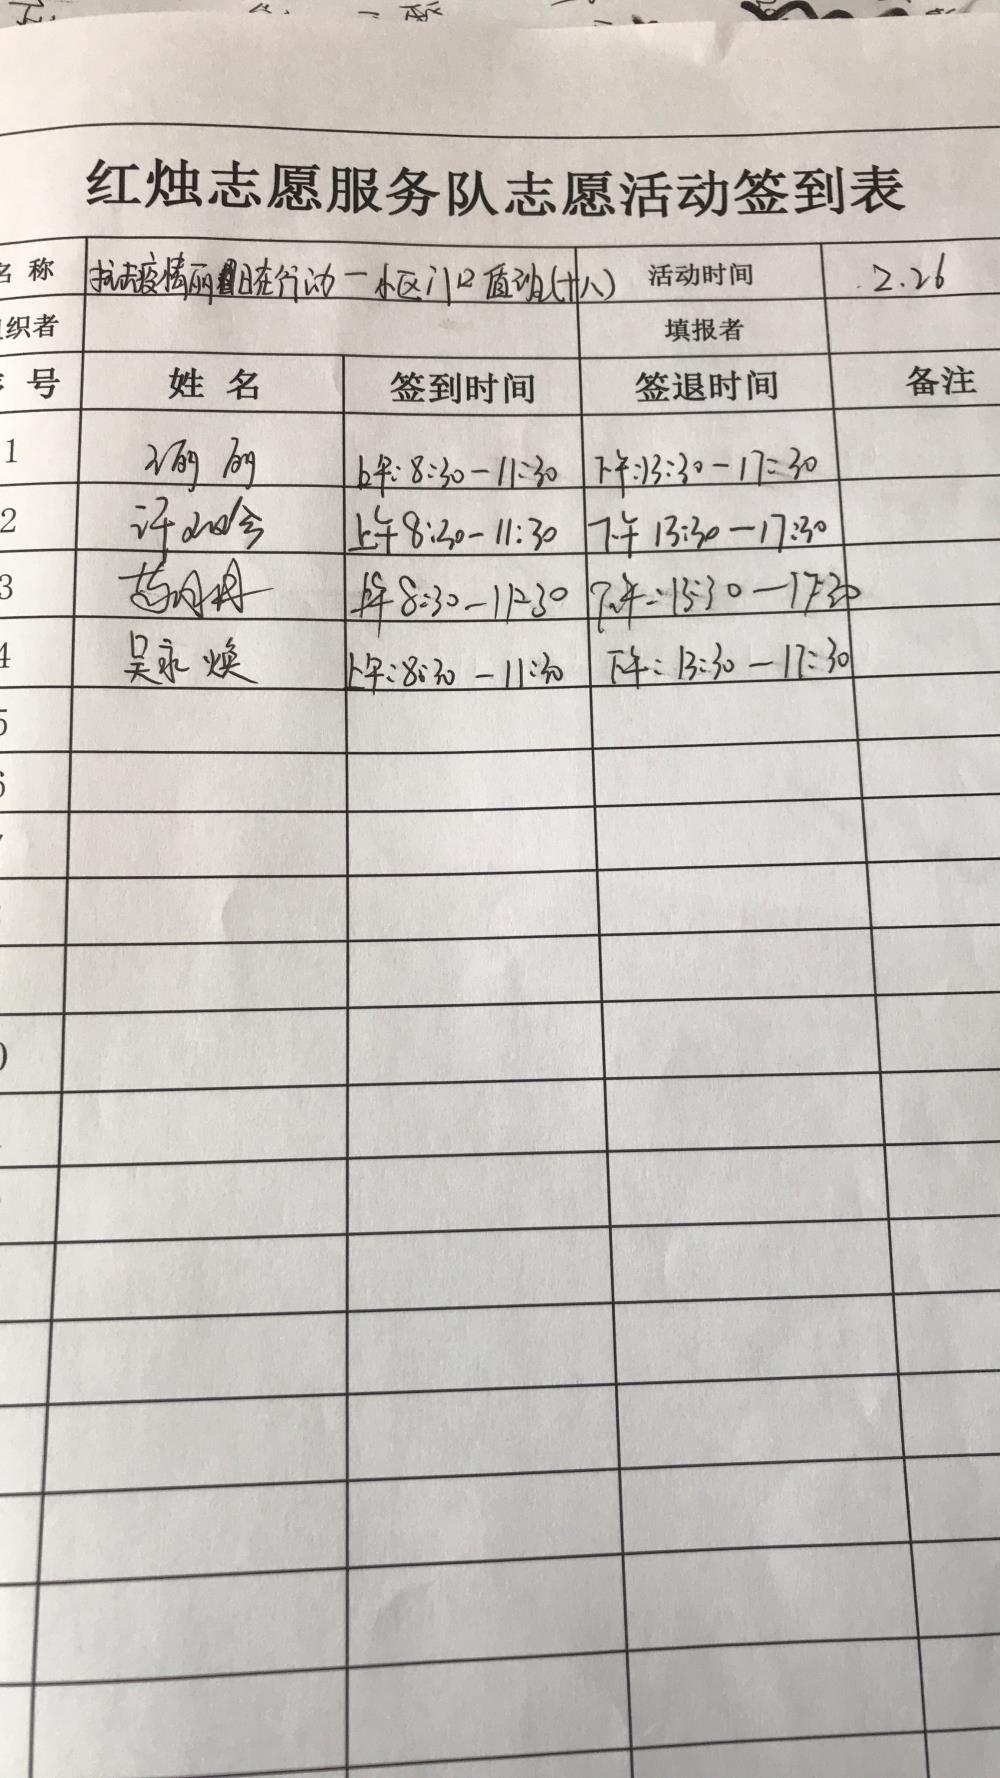 红烛志愿服务队志愿活动签到表
名称 抗击疫情 在行动一小区门口值班(十八) 活动时间 2.26
组织者 填报者
号 姓名 签到时间 签退时间 备注
1 上午:8:30-11:30 下午:13:30-17:30
2 许 上午8:30-11:30 下午13:30-17:30
3 丹丹 上午8:30-11:30 下午:13:30-17:30
4 吴永焕 上午:8:30-11:30 下午:13:30-17:30
5
6